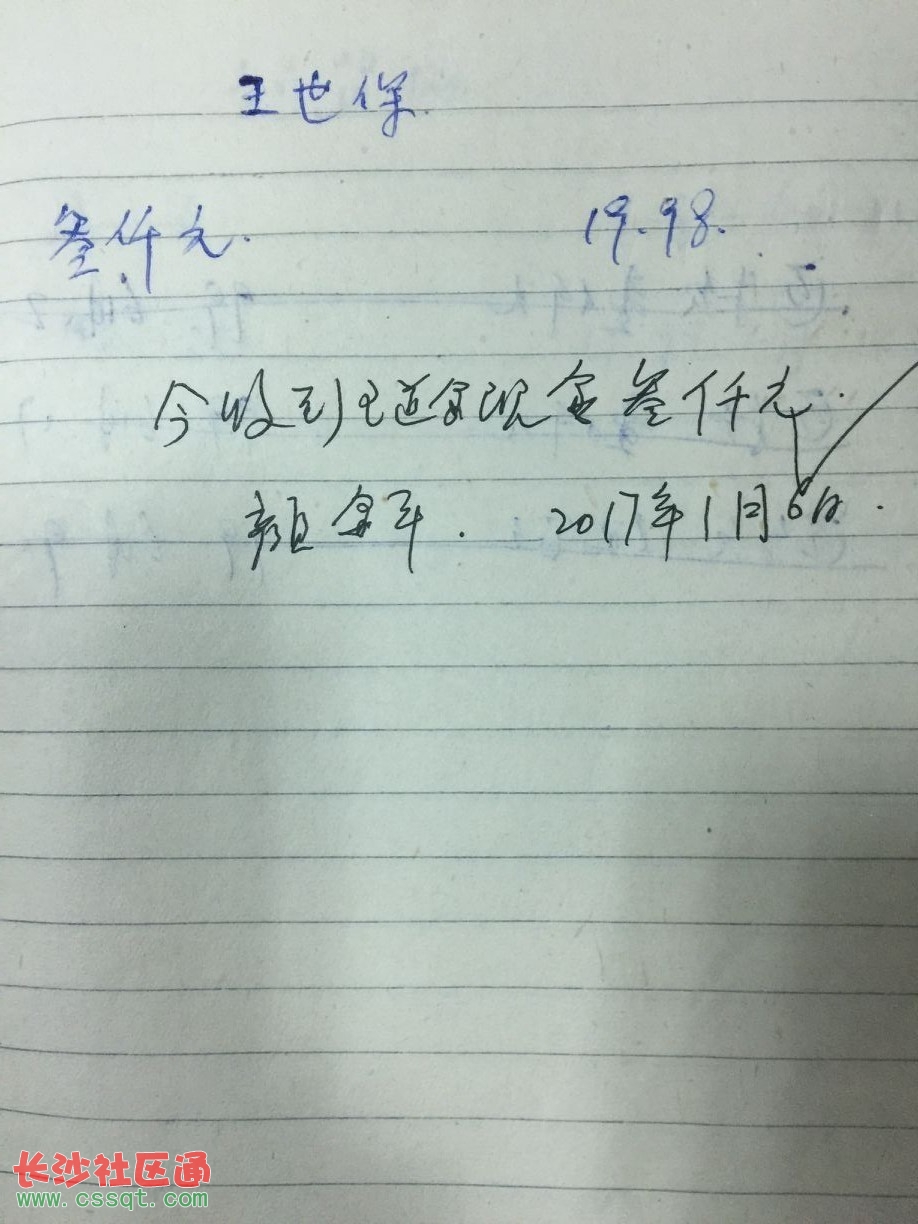 王世保.
叁仟元. 19.98.
今收到王道家现金叁仟元.
颜金平. 2017年1月6日.
长沙社区通
www.cssqt.com